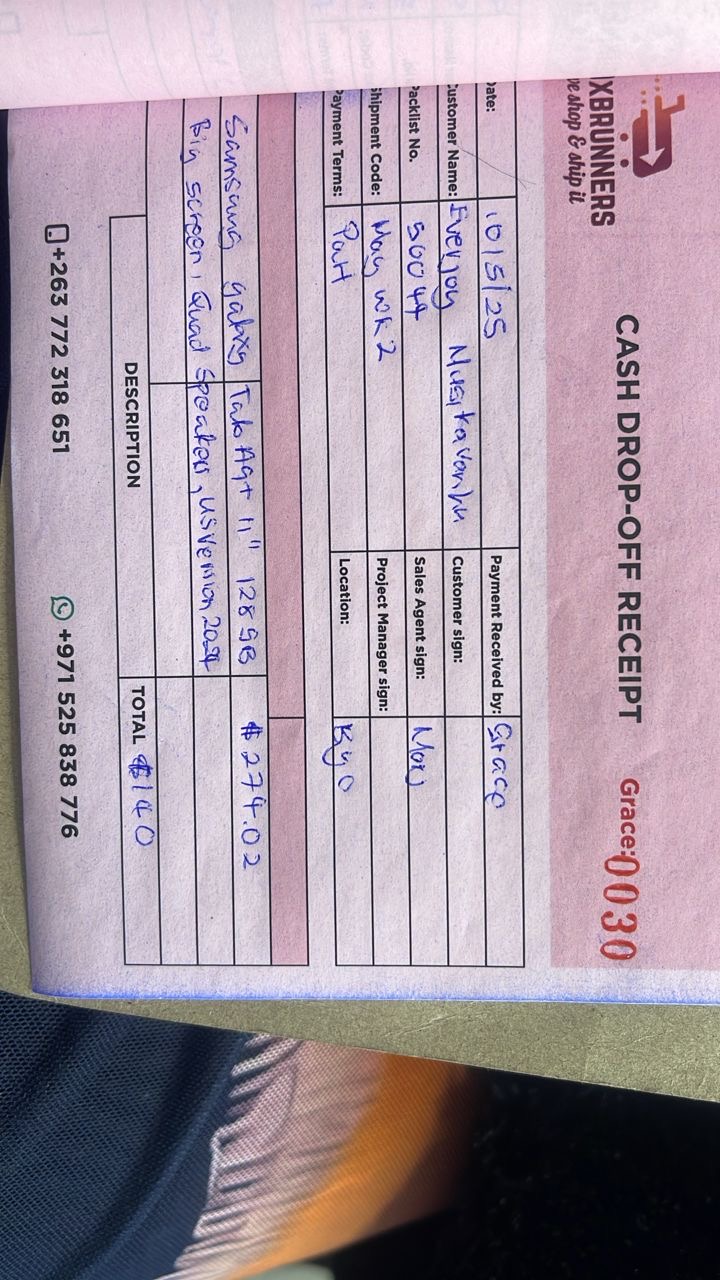 XBRUNNERS
ve shop & ship it
CASH DROP-OFF RECEIPT
Grace: 0030
Date: 10/5/25 Payment Received by: Grace
Customer Name: Everjoy Customer sign:
Packlist No. 56044 Sales Agent sign:
Shipment Code: May WK2 Project Manager sign:
Payment Terms: Part Location: Byo
Samsung galaxy Tab A9+ 11" 128GB $274.02
Big screen, Quad Speakers, US Version 2024
DESCRIPTION TOTAL $140
+263 772 318 651 +971 525 838 776